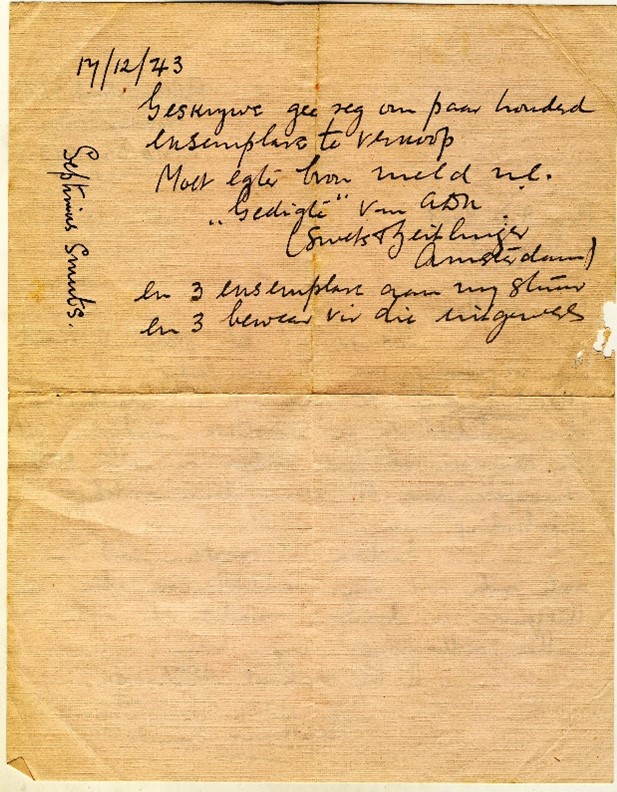 17/12/43
Geskrywe gee reg om paar honderd
eksemplare te verkoop
Moet egter bron meld nl.
„Gedigte" van ADK
(Swets & Zeitlinger
Amsterdam)
en 3 eksemplare aan my stuur
en 3 bewaar vir die
Septimus Smuts.